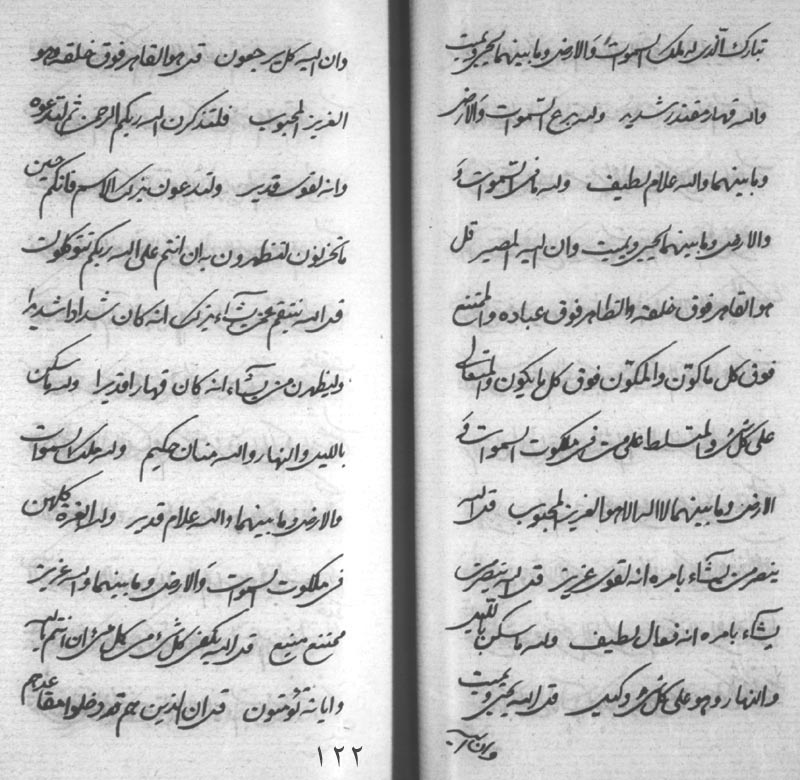 تبارك الذی له ملك السموات والارض وما بینهما یحیی ویمیت
والله قهار مقتدر شدید ولله یرجع السموات والارض
وما بینهما والله علام لطیف ولله ما فی السموات و
والارض وما بینهما یحیی ویمیت وان الیه المصیر قل
هو القاهر فوق خلقه والظاهر فوق عباده والممتنع
فوق كل ما كون والمكون فوق كل ما یكون والمتعالی
علی كل شیء والمتسلط علی من فی ملكوت السموات و
الارض وما بینهما لا اله الا هو العزیز المحبوب قل الله
ینصر من یشاء بامره انه لقوی عزیز قل الله ینصر من
یشاء بامره انه فعال لطیف وله ما سكن باللیل
والنهار وهو علی كل شیء وكیل قل الله یحیی ویمیت
وان الیه
وان الیه كل یرجعون قل هو القاهر فوق خلقه وهو
العزیز المحبوب فلتذكرن الله ربكم الرحمن ثم لتدعوه
وانه لقوی قدیر ولتدعون بذلك الاسم فانكم حین
ما تحزنون لتظهرون به ان انتم علی الله ربكم تتوكلون
قل الله ینتقم عمن یشاء بذلك انه كان شدادا شدیدا
ولیظهرن من یشاء انه كان قهارا قدیرا وله ما سكن
باللیل والنهار والله منان حكیم ولله ملك السموات
والارض وما بینهما والله علام قدیر ولله العزة كلهن
فی ملكوت السموات والارض وما بینهما والله عزیز
ممتنع منیع قل الله یكفی كل شیء من كل شیء ان انتم بالله
وایاته تؤمنون قل ان الذین هم قد دخلوا مقاعدهم
١٢٢